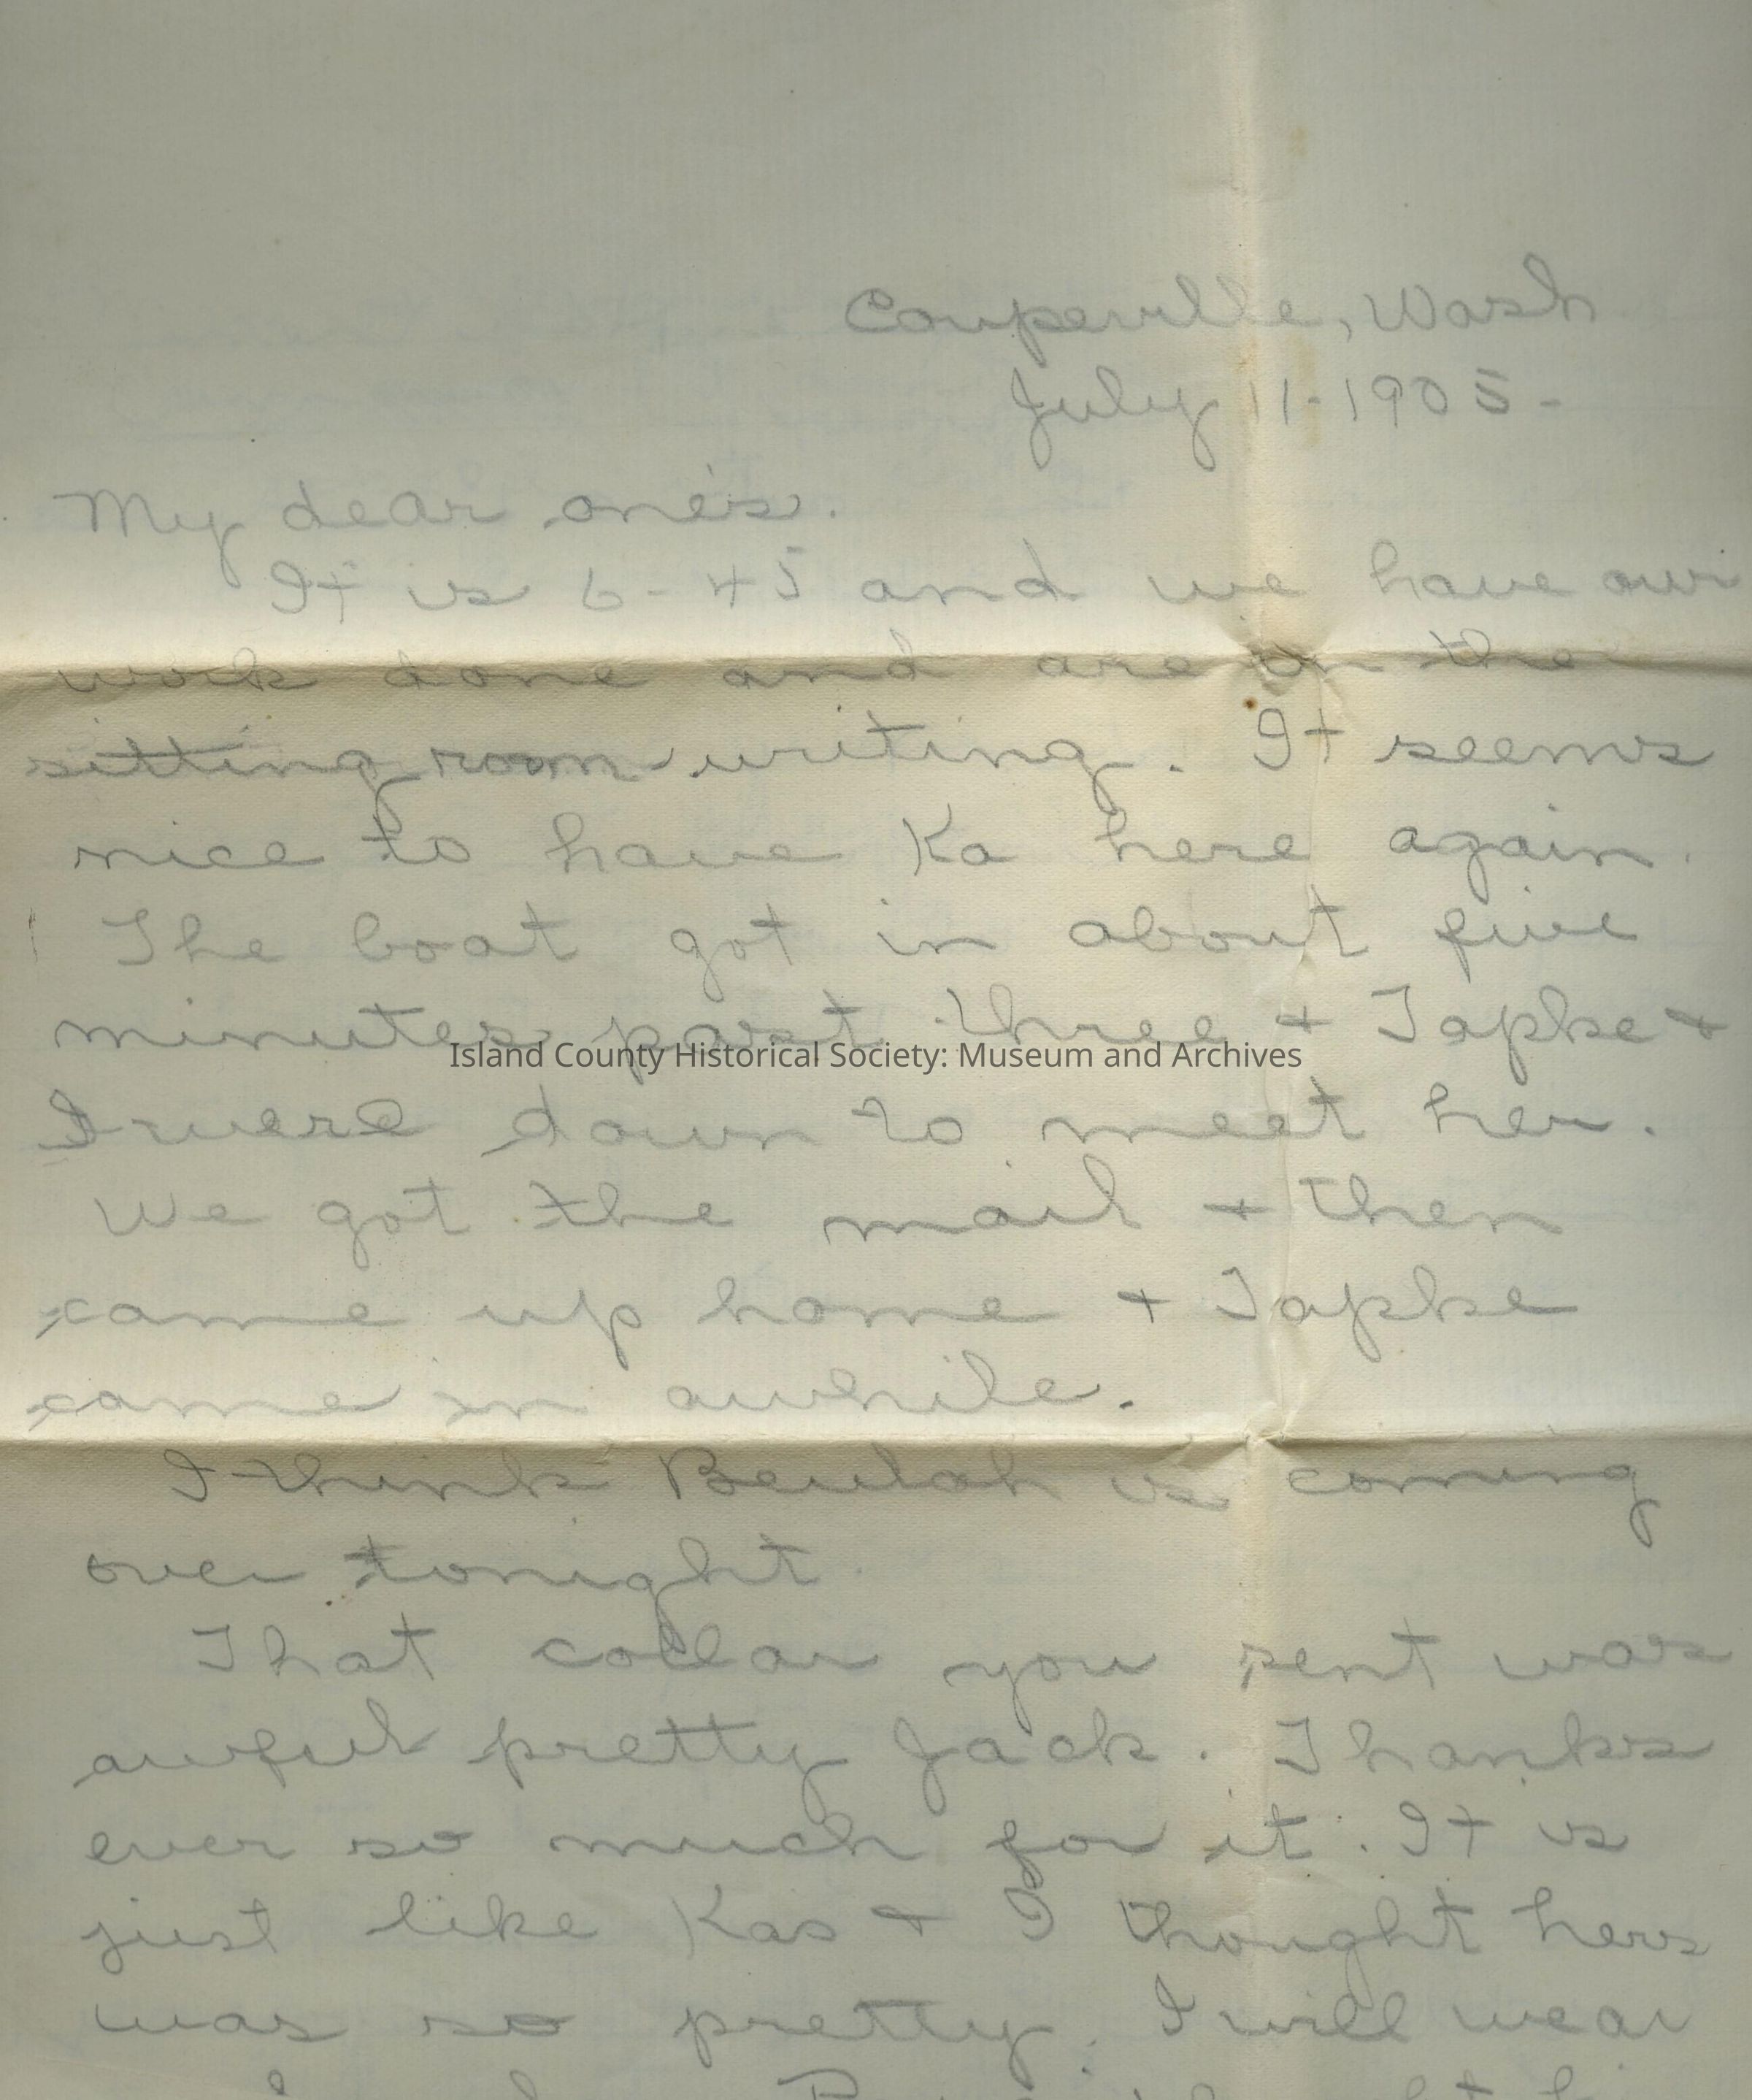 Coupeville, Wash
July 11-1905-
My dear one's.
It is 6-45 and we have our
work done and are in the
sitting room writing. It seems
nice to have Ka here again.
The boat got in about five
minutes past three + Tapke +
Island County Historical Society: Museum and Archives
I were down to meet her.
We got the mail + then
came up home + Tapke
came in awhile.
I think Beulah is coming
over tonight.
That collar you sent was
awful pretty Jack. Thanks
ever so much for it. It is
just like Kas + I thought hers
was so pretty. I will wear